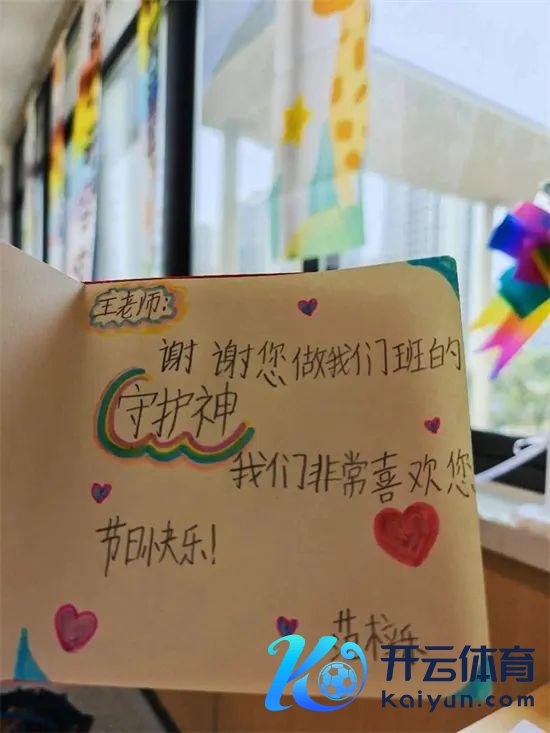 王老师:
谢谢您做我们班的
守护神
我们非常喜欢您
节日快乐!
开云体育
kaiyun.com